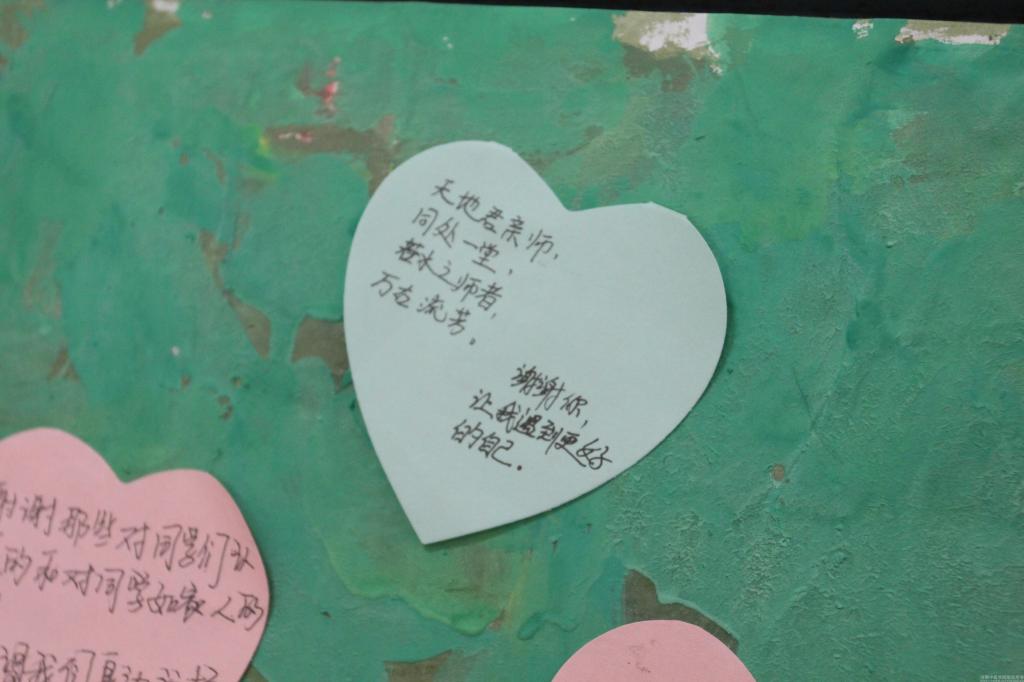 天地君亲师,
同处一堂,
若水之师者,
万古流芳。
谢谢你,
让我遇到更好
的自己.
谢谢那些对同学们认
的和对同学如家人的
我们